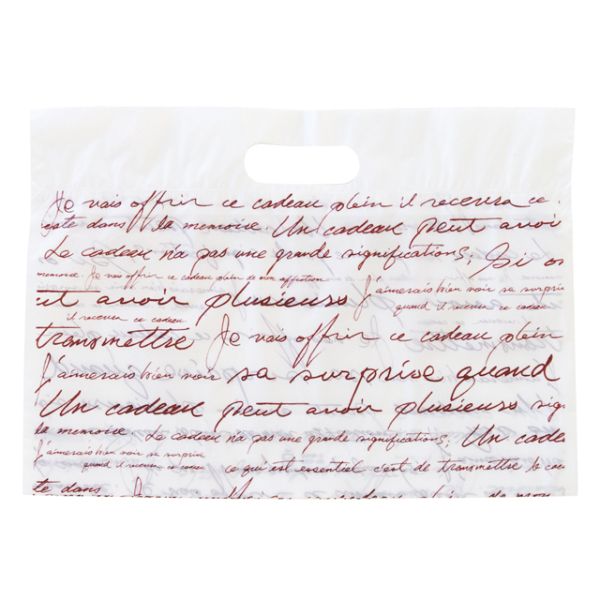 Je vais offrir ce cadeau plein il recevra ce
dans la memoire. Un cadeau peut avoir
Le cadeau n'a pas une grande significations; Si on
memoire Je vais offrir ce cadeau plein de mon affection
J'aimerais bien voir sa surprise
avoir plusieurs quand il recevra ce cadeau
il recevra ce cadeau
transmettre Je vais offrir ce cadeau plein
J'aimerais bien voir sa surprise quand
Un cadeau peut avoir plusieurs sig
la memoire. Le cadeau n'a pas une grande significations; Un cade
J'aimerais bien voir sa surprise
quand il recevra ce cadeau ce qui est essentiel c'est de transmettre le
te dans